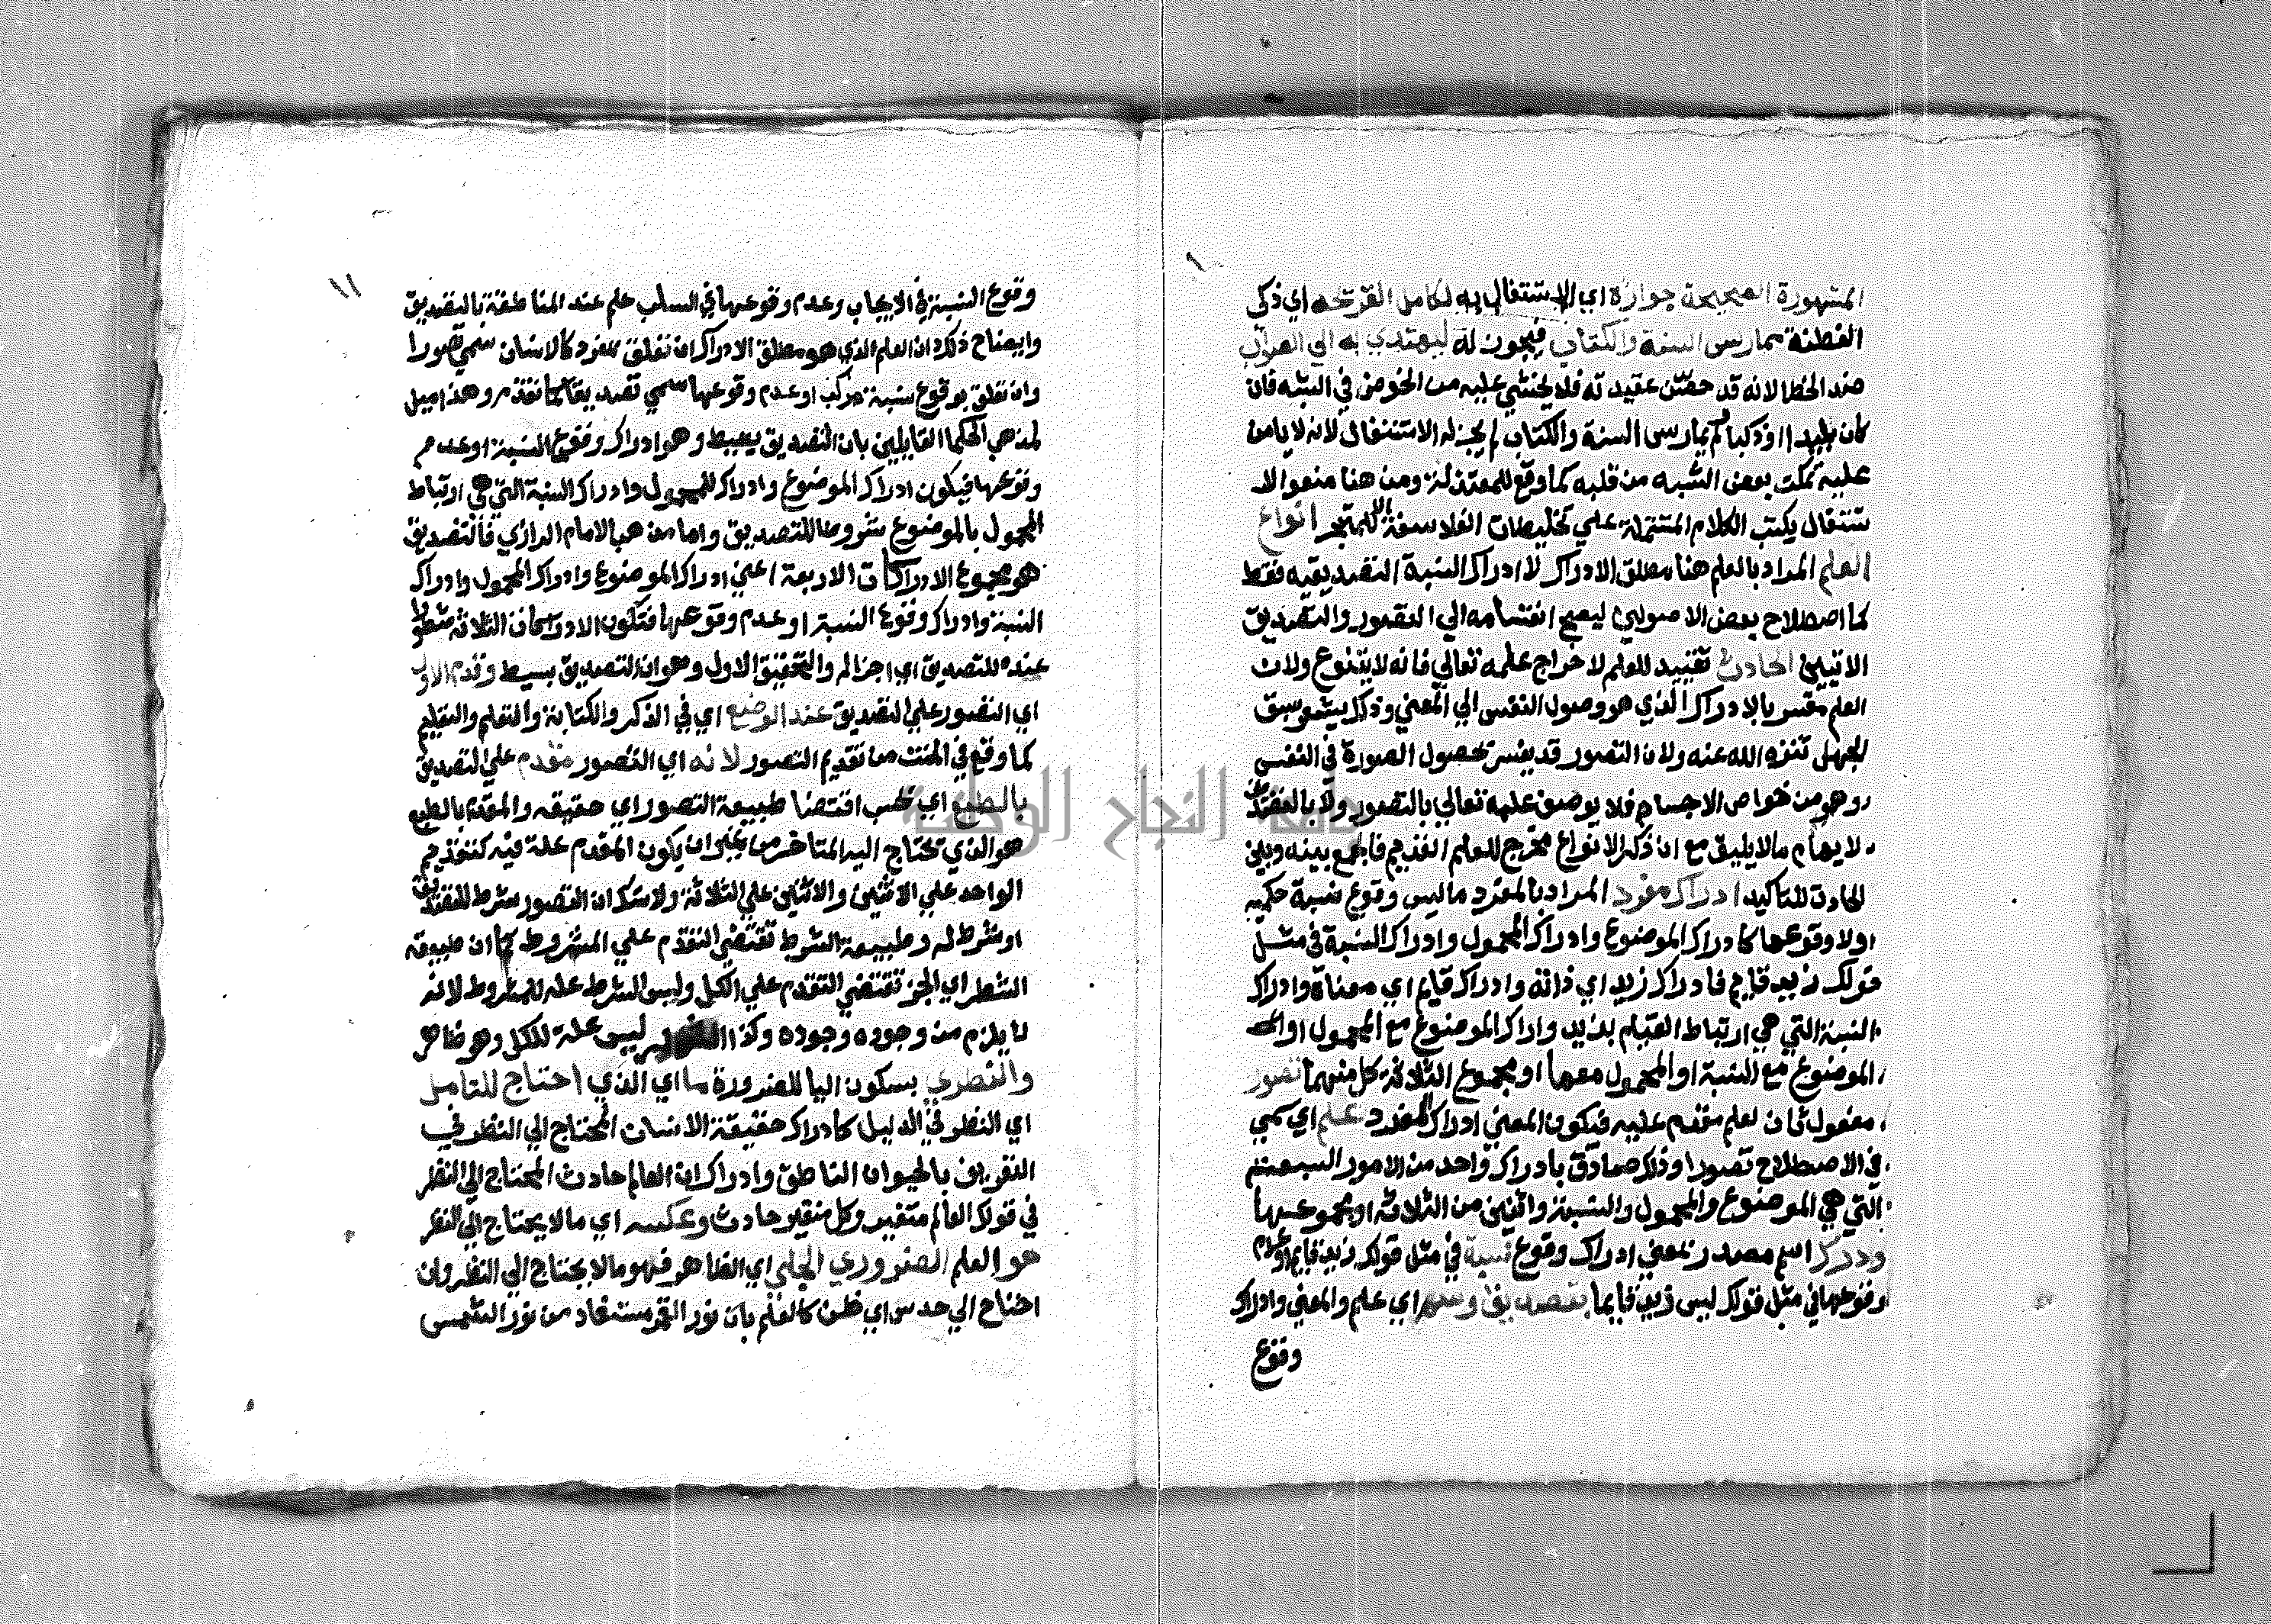 ١٠
المشهورة الصحيحة جوازه اي الاشتغال به لكامل القريحه اي ذكي
الفطنة ممارس السنة والكتاب فيجوز له ليهتدي به الي الصواب
ضد الخطا لانه قد حصّن عقيدته فلا يخشي عليه من الخوض في الشبه فان
كان بليدا او ذكيا لم يمارس السنة والكتاب لم يجز له الاشتغال لانه لا يامن
عليه تمكن بعض الشبه من قلبه كما وقع للمعتزلة ومن هنا منعوا الا
شتغال بكتب الكلام المشتملة علي تخليطات الفلاسفة الا للمتبحر انواع
العلم المراد بالعلم هنا مطلق الادراك لا ادراك النسبة التصديقيه فقط
كما اصطلاح بعض الاصولين ليصح انقسامه الي التصور والتصديق
الاتيين الحادث تقييد للعلم لاخراج علمه تعالي فانه لا يتنوع ولان
العلم مفسر بالادراك الذي هو وصول النفس الي المعني وذلك يشعر بسبق
الجهل تنزه الله عنه ولان التصور قد يفسر بحصول الصورة في النفس
وهو من خواص الاجسام فلا يوصف علمه تعالي بالتصور ولا بالتصديق
لايهام ما لا يليق مع ان ذكر الانواع مخرج للعلم القديم فالجمع بينه وبين
الحادث للتاكيد ادراك مفرد المراد بالمفرد ما ليس وقوع نسبة حكميه
اولا وقوعها كادراك الموضوع وادراك المحمول وادراك النسبة في مثل
قولك زيد قايم فادراك زيد اي ذاته وادراك قايم اي معناه وادراك
النسبة التي هي ارتباط القيام بزيد وادراك الموضوع مع المحمول او
الموضوع مع النسبة او المحمول معها او مجموع الثلاثة كل منهما تصور
مفعول ثان لعلم مقدم عليه فيكون المعني ادراك المفرد علم اي سمي
في الاصطلاح تصورا وذلك صادق بادراك واحد من الامور السبعة
التي هي الموضوع والمحمول والنسبة واثنين من الثلاثة او مجموعها
ودرك اسم مصدر بمعني ادراك وقوع نسبة في مثل قولك زيد قايم او عدم
وقوعها في مثل قولك ليس زيد قايما بتصديق وسم اي علم والمعني وادراك
وقوع
١١
وقوع النسبة في الايجاب وعدم وقوعها في السلب علم عند المناطقة بالتصديق
وايضاح ذلك ان العلم الذي هو مطلق الادراك ان تعلق بمفرد كالانسان سمي تصورا
وان تعلق بوقوع نسبة مركب او عدم وقوعها سمي تصديقا كما تقدم وهذا ميل
لمذهب الحكما القايلين بان التصديق بسيط وهو ادراك وقوع النسبة او عدم
وقوعها فيكون ادراك الموضوع وادراك المحمول وادراك النسبة التي هي ارتباط
المحمول بالموضوع شروطا للتصديق واما مذهب الامام الرازي فالتصديق
هو مجموع الادراكات الاربعة اعني ادراك الموضوع وادراك المحمول وادراك
النسبة وادراك وقوع النسبة او عدم وقوعها فتكون الادراكات الثلاثة شطورا
عنده للتصديق اي اجزا له والتحقيق الاول وهو ان التصديق بسيط وقدم الاول
اي التصور علي التصديق عند الوضع اي في الذكر والكتابة والتعلم والتعليم
كما وقع في المتن من تقديم التصور لانه اي التصور مقدم علي التصديق
بالطبع اي بحسب اقتضا طبيعة التصور اي حقيقه والمقدم بالطبع
هو الذي يحتاج اليه المتاخر من غير ان يكون المقدم علة فيه كتقديم
الواحد علي الاثنين والاثنين علي الثلاثة ولا شك ان التصور شرط للتصديق
او شرط له وطبيعة الشرط تقتضي التقدم علي المشروط كما ان طبيعة
الشطر اي الجز تقتضي التقدم علي الكل وليس الشرط علة للمشروط لانه
لا يلزم من وجوده وجوده وكذا الجز ليس علة للكل وهو ظاهر
والنظري بسكون اليا للضرورة ما اي الذي احتاج للتامل
اي النظر في الدليل كادراك حقيقة الانسان المحتاج الي النظر في
التعريف بالحيوان الناطق وادراك ان العالم حادث المحتاج الي النظر
في قولك العالم متغير وكل متغير حادث وعكسه اي ما لا يحتاج الي النظر
هو العلم الضروري الجلي اي الظاهر فهو ما لا يحتاج الي النظر وان
احتاج الي حدس اي ظن كالعلم بان نور القمر مستفاد من نور الشمس
جامعة النجاح الوطنية